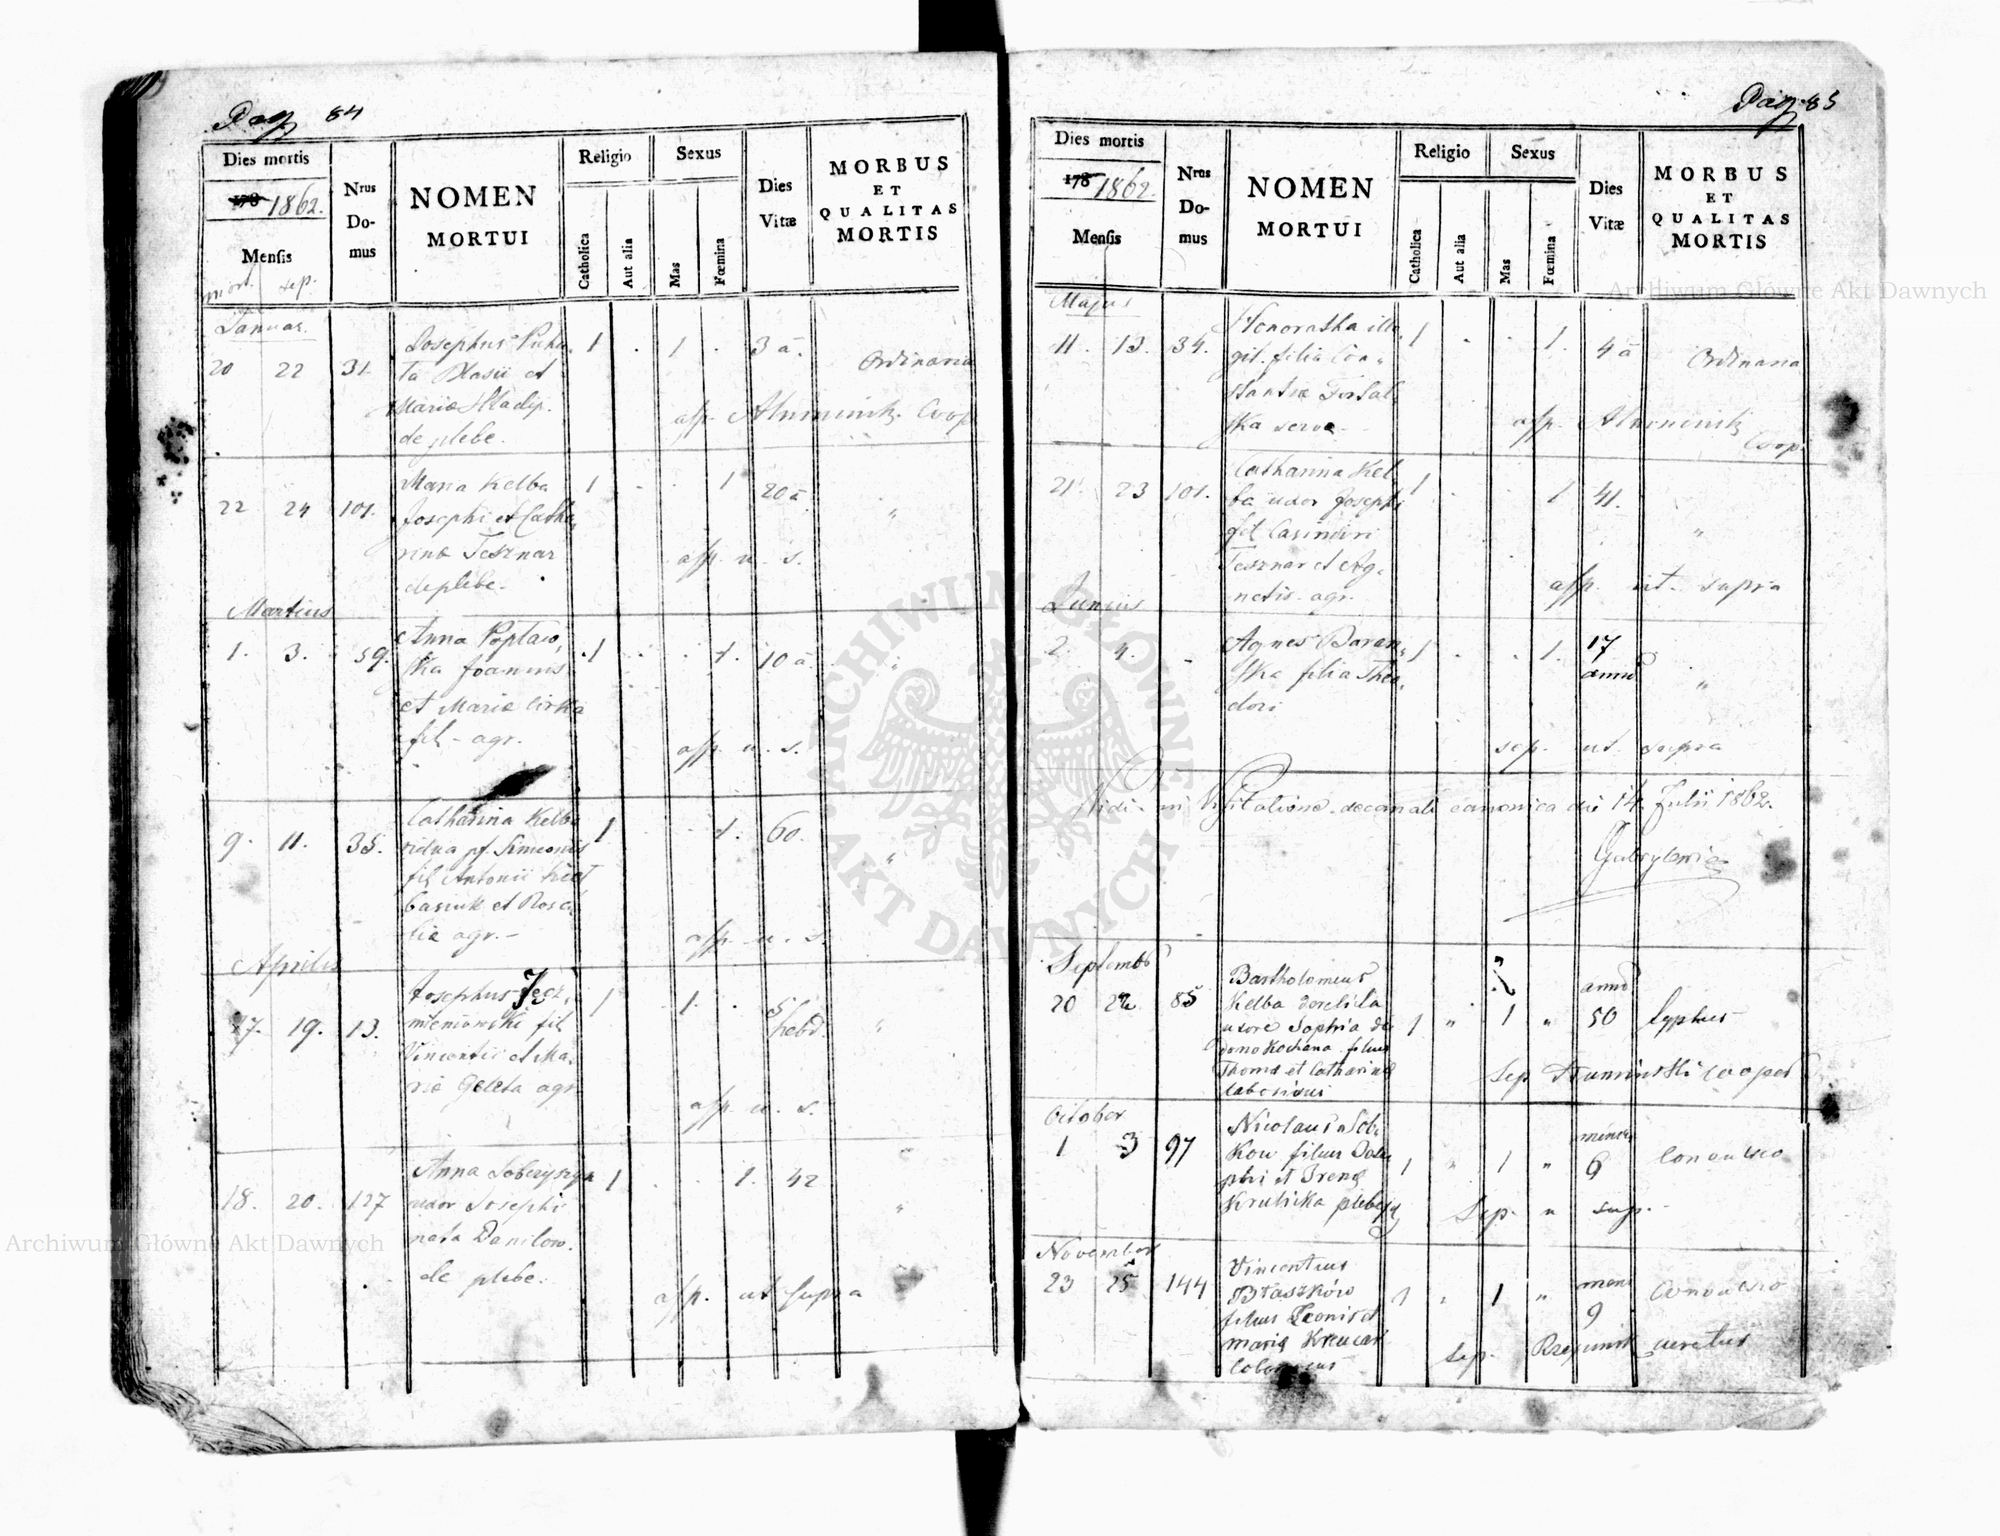 Pag 84
Dies mortis
178 1862.
Mensis
mort. sep.
Nrus
Do-
mus
NOMEN
MORTUI
Religio
Catholica
Aut alia
Sexus
Mas
Fœmina
Dies
Vitæ
MORBUS
ET
QUALITAS
MORTIS
Januar.
20 22 31.
Josephus
ta Blasii et
Mariæ
de plebe.
1 . 1 . 3 a. Ordinaria
asp. Coop
22 24 101.
Maria Kelba
Josephi et Catha-
rinæ Tesznar
de plebe.
1 . . 1 20 a. "
asp. u. s.
Martius
1. 3. 59.
Anna
ska Joannis
et Mariæ
fil - agr.
1 . . 1. 10 a. "
asp. u. s.
9. 11. 35.
Catharina Kelba
vidua pf. Simeonis
fil Antonii
et Rosa-
liæ agr. -
1 . . 1. 60. "
asp. u. s.
Aprilis
17. 19. 13.
Josephus
fil
Vincentii et Ma-
riæ Geleta agr.
1 . 1. . 5 hebd. "
asp. u. s.
18. 20. 127
Anna
uxor Josephi
nata Danilow.
de plebe.
1 . . 1. 42 "
asp. ut supra
Pag. 85
Dies mortis
178 1862.
Mensis
Nrus
Do-
mus
NOMEN
MORTUI
Religio
Catholica
Aut alia
Sexus
Mas
Fœmina
Dies
Vitæ
MORBUS
ET
QUALITAS
MORTIS
Majus
11. 13. 34.
Honoratha ille-
git. filia Con-
stantiæ
ska serva -
1 . . 1. 4 a Ordinaria
asp.
Coop.
21. 23 101.
Catharina Kel-
ba uxor Josephi
fil Casimiri
Tesznar et Ag-
netis - agr.
1 . . 1 41. "
asp. ut. supra
Junius
2. 4. -
Agnes Baran-
ska filia Theo-
dori
1 . . 1. 17
anno "
sep. ut. supra
Vidi in Visitatione decanali canonica die 14. Julii 1862.
Septemb
20 22 85
Bartholomeus
Kelba derelicta
uxore Sophia de
domo Kochana filius
Thomæ et Catharinæ
1 " 1 " anno
50 typhus
Sep cooper
October
1 3 97
Nicolaus
filius
et Irenæ
plebej
1 " 1 " 6
Sep. u sup.
November
23 25 144
Vincentius
Błaszków
filius Leonis et
Mariæ
1 . 1 " mens
9
Sep.
Archiwum Główne Akt Dawnych
Archiwum Główne Akt Dawnych
ARCHIWUM GŁÓWNE AKT DAWNYCH